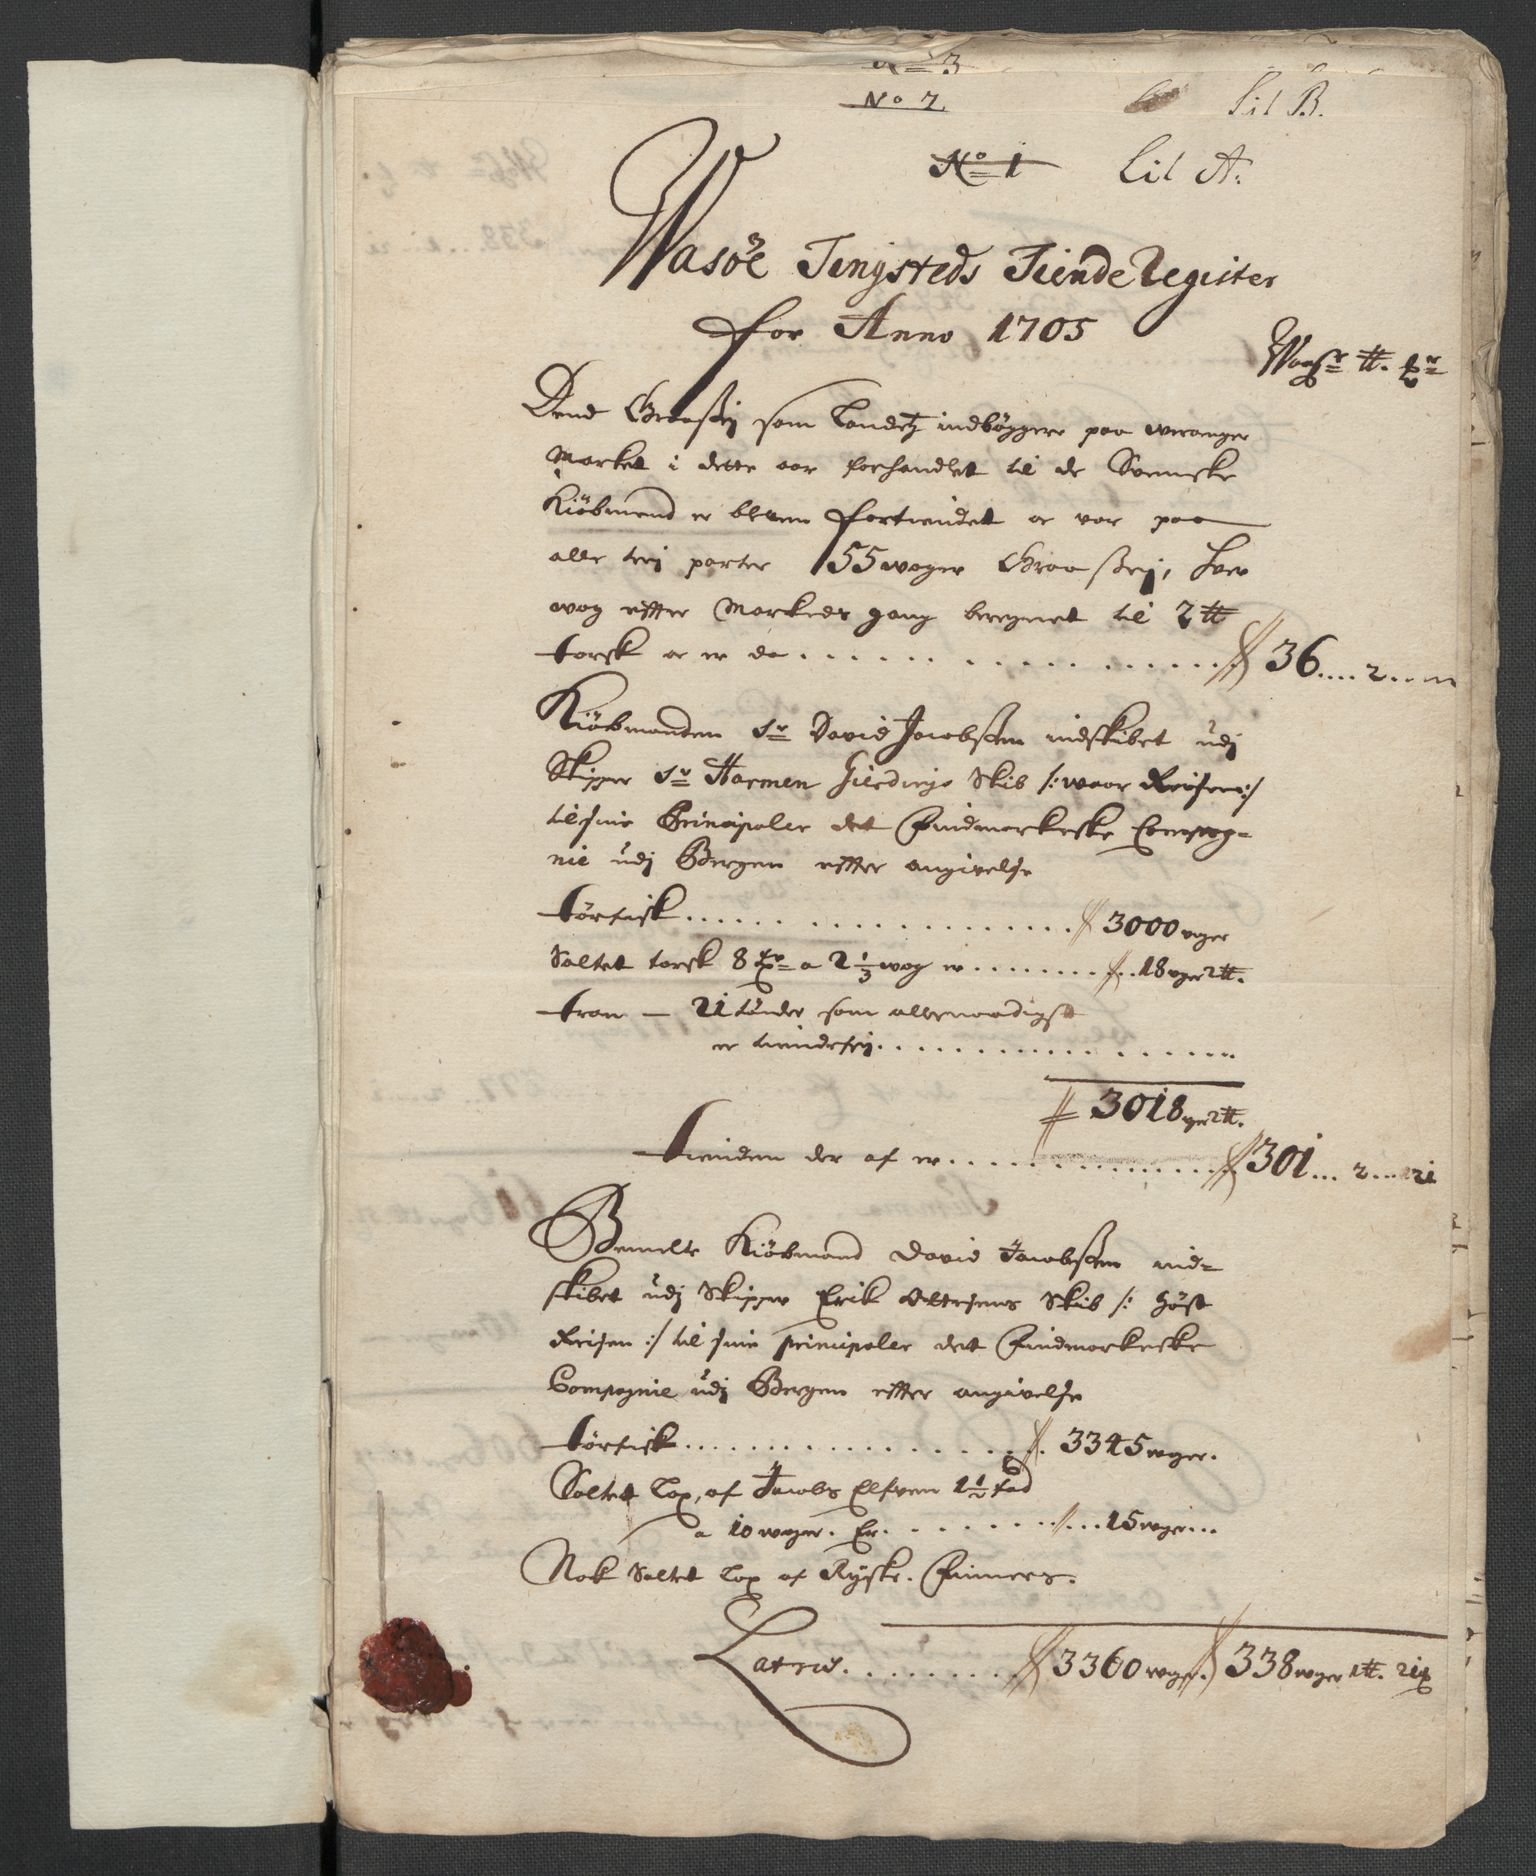 No 3
No 7.
Lit B.
No 1
Lit A:
Wasöe Tingsteds Tiende Register
for Anno 1705
Woger ℔. 
Dend Graasej som Landetz indbÿggere paa Waranger
Market i dette aar forhandlet til de Svenske
Kiöbmend er bleven fortiendet oc var paa
alle trej parter 55 woger Graa Sej, hver
wog effter Markeds gang beregnet til 2 ℔
torsk oc er da . . . . . 36 . . . . 2 . . .
Kiöbmanden Sr David Jacobsen indskibet udj
Skipper Sr Harmen Gierdings Skib /: waar Reisen :/
til sine Principaler det Findmarkeske Compag=
nie udj Bergen effter angivelse
törfisk . . . . . 3000 wger
Saltet torsk 8 tr a 2 1/3 wog er . . . . . 18 wger 2 ℔.
tran — 21 tönder som allernaadigst
er tiendefrj . . . . .
3018 wger 2 ℔.
tienden der af er . . . . . 301 . . . 2 . . . 21
Bemelte Kiöbmand David Jacobsen ind=
skibet udj Skipper Erik Skib /: Höst
Reisen :/ til sine principaler det Findmarkeske
Compagnie udj Bergen effter angivelse
törfisk . . . . . 3345 wger.
Saltet Lax, af Jacobs Elfven 1 1/2 fad
a 10 woger. Er . . . . . 15 wger . . .
Nok Saltet Lax af Rÿske. Finner.
Lateris . . . . . 3360 wger. 338 wger 1 ℔. 21